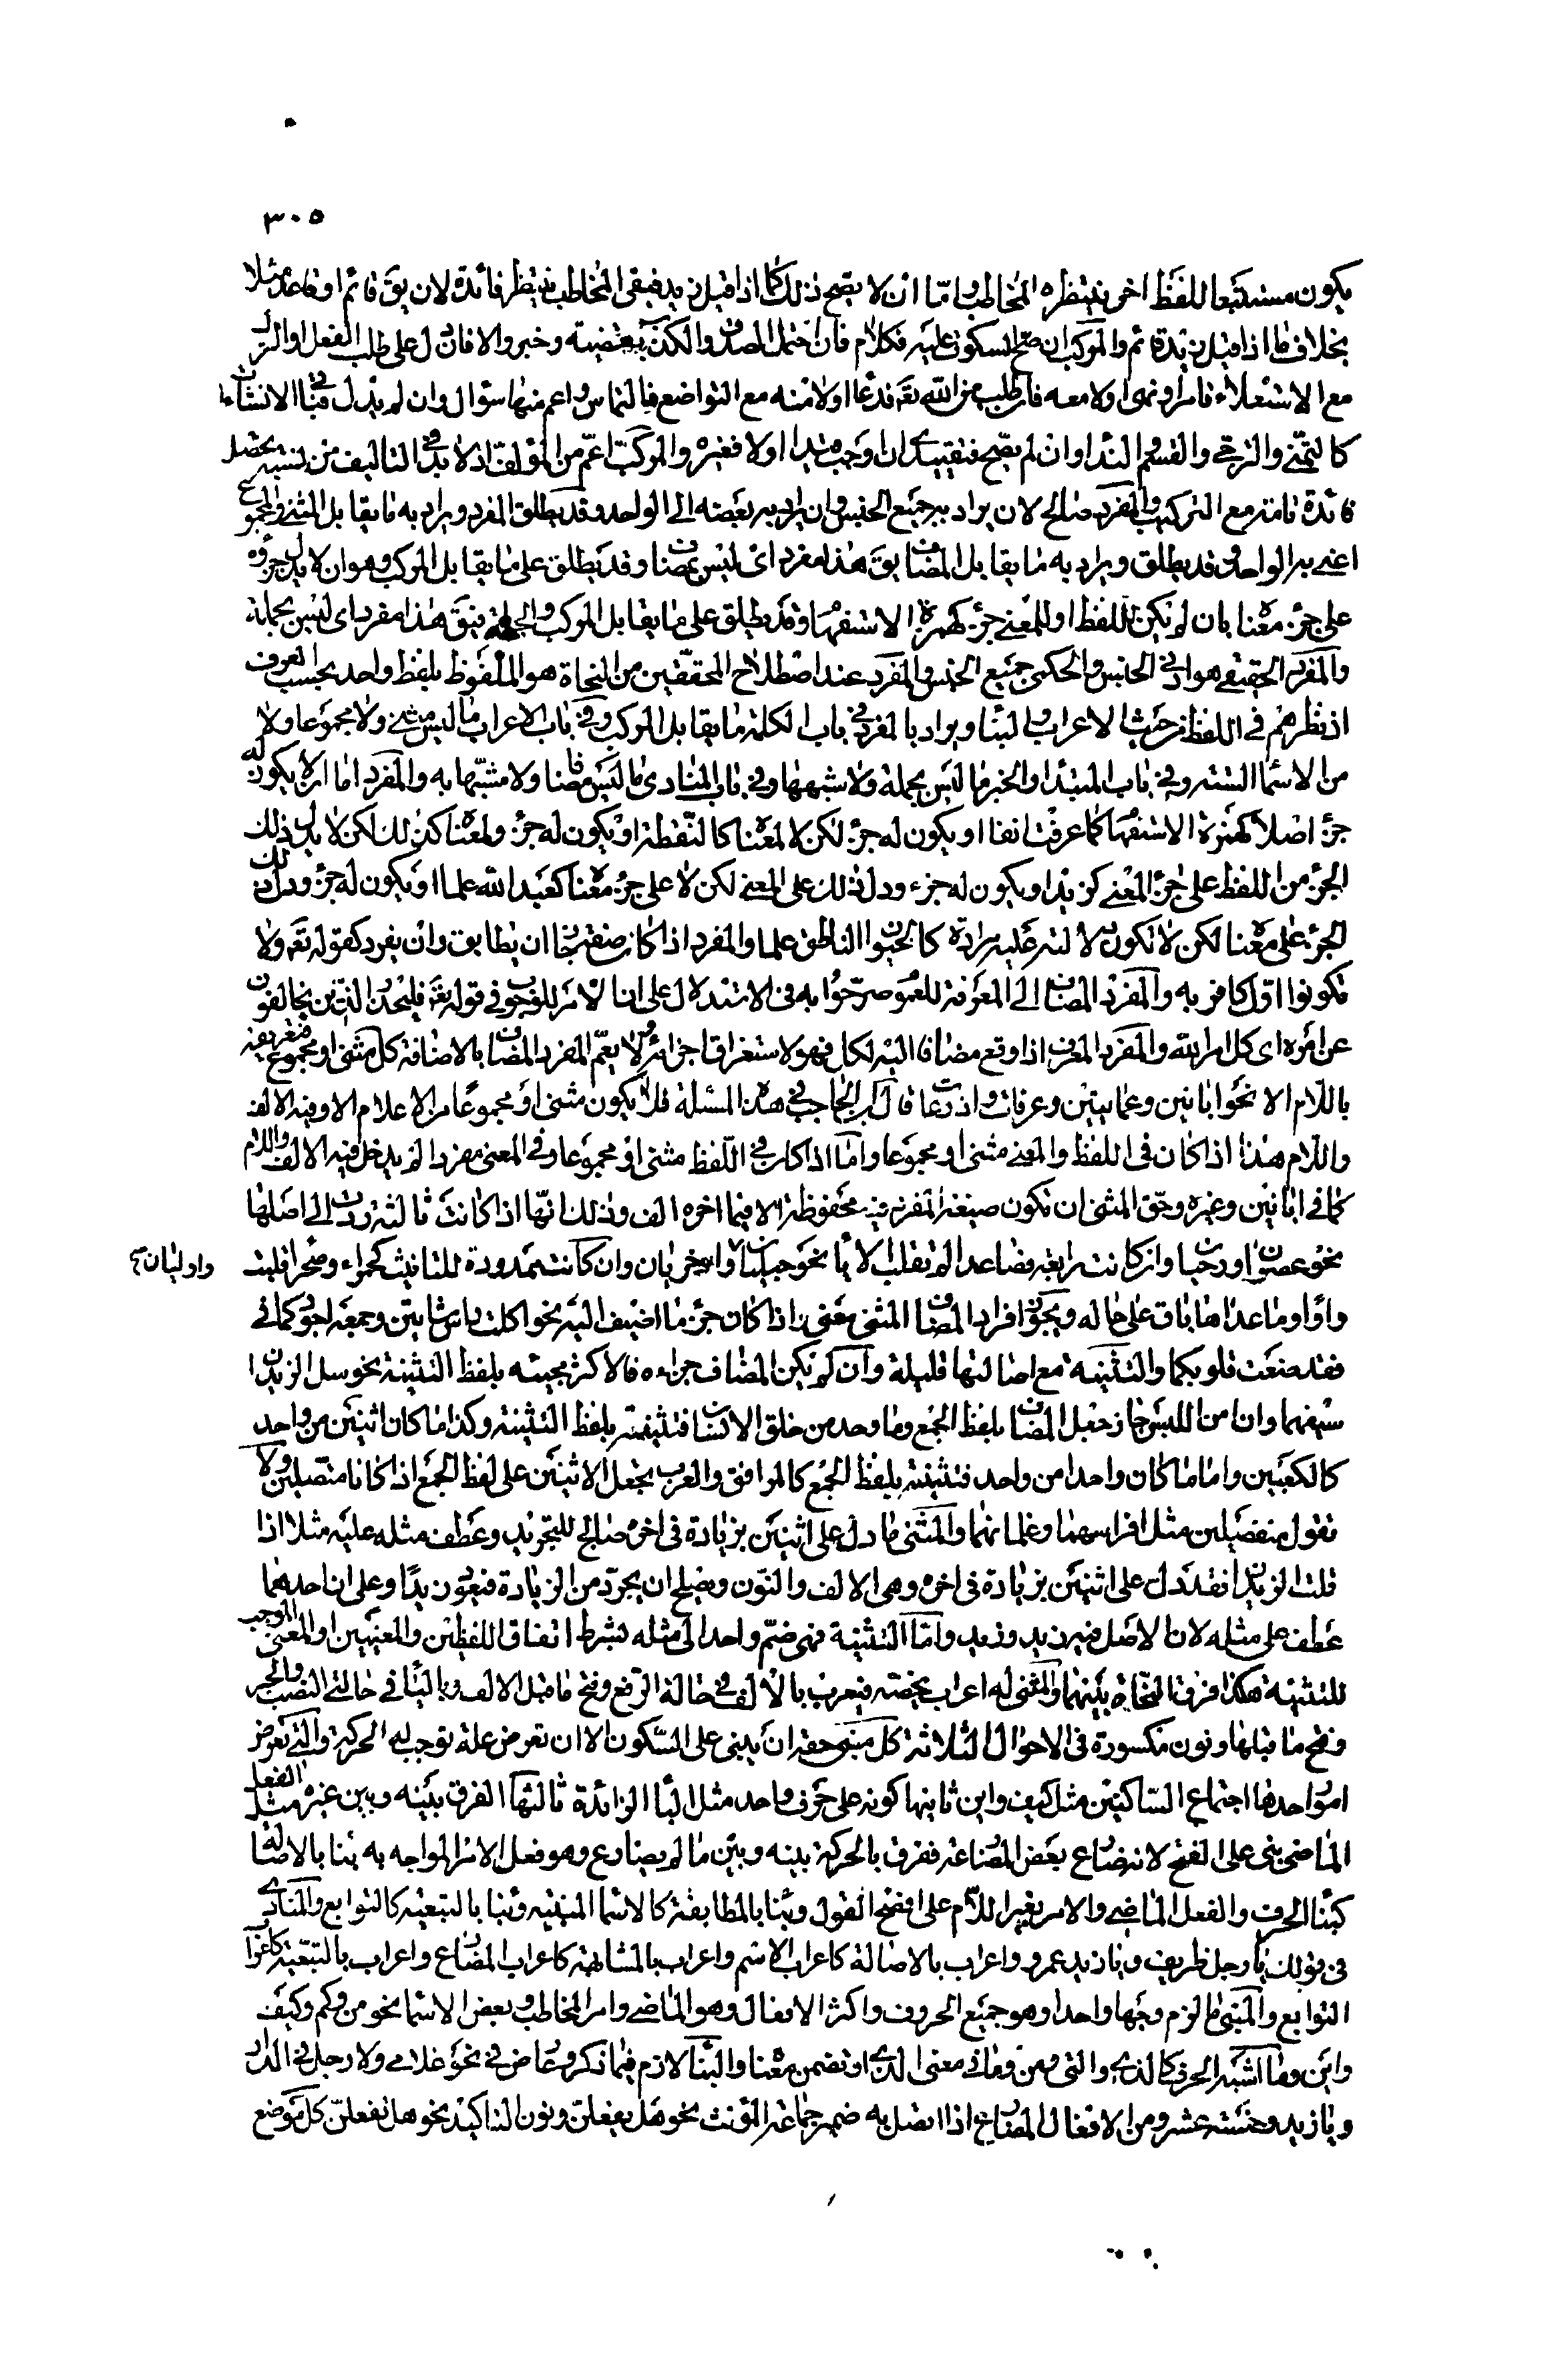 ٣٠٥
يكون مستتبعا للفظ اخر ينتظره المخاطب واما ان لا يصح ذلك كما اذا قيل زيد فيبقى المخاطب ينتظر فائدة لان يق قائم او قاعد مثلا
بخلاف ما اذا قيل زيد قائم والمركب ان صح السكوت عليه فكلام فان احتمل الصدق والكذب فقضيته وخبر والا فان دل على طلب الفعل او الترك
مع الاستعلاء فامر او نهى او لا معه فان طلب من الله تعه فدعا او لا منه مع التواضع فالتماس واعم منها سؤال وان لم يدل فباقي الانشاءات
كالتمنى والترجى والقسم والنداء وان لم يصح فتقييدى ان اوجب قيدا او لا فغيره والمركب اعم من المؤلف اذ لا بد في التاليف من نسبته يحصل
فائدة تامة مع التركيب والمفرد صالح لان يراد به جميع الجنس وان يراد به بعضه الى الواحد وقد يطلق المفرد ويراد به ما يقابل المثنى والمجموع
اعنى به الواحد وقد يطلق ويراد به ما يقابل المضاف يق هذا مفرد اى ليس بمضاف وقد يطلق على ما يقابل المركب وهو ان لا يدل جزؤه
على جزء معناه بان لم يكن للفظ او للمعنى جزء كهمزة الاستفهام وقد يطلق على ما يقابل المركب والجملة فيق هذا مفرد اى ليس بجملة
والمفرد الحقيقى هو ادنى الجنس والحكمى جميع الجنس والمفرد عند اصطلاح المحققين من النحاة هو الملفوظ بلفظ واحد بحسب العرف
اذ نظرهم في اللفظ من حيث الاعراب والبناء ويراد بالمفرد في باب الكلمة ما يقابل المركب وفي باب الاعراب ما ليس مثنى ولا مجموعا ولا
من الاسماء الستة وفي باب المبتدا والخبر ما ليس بجملة ولا شبهها وفي باب المنادى ما ليس مضافا ولا مشبها به والمفرد اما ان لا يكون له
جزء اصلا كهمزة الاستفهام كما عرفت انفا او يكون له جزء لكن لا لمعناه كالنقطة او يكون له جزء ولمعناه كذلك لكن لا يدل ذلك
الجزء من اللفظ على جزء المعنى كزيد او يكون له جزء ودل ذلك على المعنى لكن لا على جزء معناه كعبد الله علما او يكون له جزء ودل ذلك
الجزء على معناه لكن لا تكون دلالته عليه مرادة كالحيوان الناطق علما والمفرد اذا كان صفة جاز ان يطابق وان يفرد كقوله تعه ولا
تكونوا اول كافر به والمفرد المضاف الى المعرفة للعموم صرحوا به في الاستدلال على ان الامر للوجوب في قوله تعه فليحذر الذين يخالفون
عن امره اى كل امر الله والمفرد المعرف اذا وقع مضافا اليه لكل فهو لاستغراق اجزائه ولا يعم المفرد المضاف بالاضافة كل مثنى او مجموع فتعريفه
باللام الا نحو ابانين وعمايتين وعرفات واذرعات قال ابن الحاجب في هذه المسئلة فلا يكون مثنى او مجموعا من الاعلام الا وفيه الالف
واللام هذا اذا كان في اللفظ والمعنى مثنى او مجموعا واما اذا كان في اللفظ مثنى او مجموعا وفي المعنى مفردا لم يدخل فيه الالف واللام
كما في ابانين وغيره وحق المثنى ان تكون صيغة المفرد فيه محفوظة الا فيما اخره الف وذلك انها اذا كانت ثالثة ردت الى اصلها
نحو عصوان ورحيان وان كانت رابعة فصاعدا لم تقلب الا ياء نحو حبليان واخريان وان كانت ممدودة للتانيث كحمراء وصحراء قلبت
واوليان
واوا وما عداها باق على حاله ويجوز افراد المضاف المثنى معنى اذا كان جزء ما اضيف اليه نحو اكلت راس شاتين وجمعه اجود كما في
فقد صغت قلوبكما والتثنية مع اصالتها قليلة وان لم يكن المضاف جزءه فالاكثر مجيئه بلفظ التثنية نحو سل الزيدان
سيفهما وان امن اللبس جاز جعل المضاف بلفظ الجمع وما وحد من خلق الانسان فتثنيته بلفظ التثنية وكذا ما كان اثنين من واحد
كالكعبين واما ما كان واحدا من واحد فتثنيته بلفظ الجمع كالمرافق والعرب تجعل الاثنين على لفظ الجمع اذا كانا متصلين ولا
تقول منفصلين مثل افراسهما وغلمانهما والمثنى ما دل على اثنين بزيادة في اخره صالح للتجريد وعطف مثله عليه مثلا اذا
قلت الزيدان فقد دل على اثنين بزيادة في اخره وهى الالف والنون ويصلح ان يجرد من الزيادة فيعود زيدا وعلى ان احدهما
عطف على مثله لان الاصل فيه زيد وزيد واما التثنية فهى ضم واحد الى مثله بشرط اتفاق اللفظين والمعنيين او المعنى الموجب
للتثنية هكذا فرق النحاة بينهما والمثنى له اعراب يخصه فيعرب بالالف في حالة الرفع وفتح ما قبل الالف وبالياء في حالتى النصب والجر
وفتح ما قبلها ونون مكسورة في الاحوال الثلاثة كل مبنى حقه ان يبنى على السكون الا ان تعرض علة توجب له الحركة والتى تعرض
امور احدها اجتماع الساكنين مثل كيف واين ثانيها كونه على حرف واحد مثل الباء الزائدة ثالثها الفرق بينه وبين غيره مثل الفعل
الماضى بنى على الفتح لانه ضارع بعض المضارعة ففرق بالحركة بينه وبين ما لم يضارع وهو فعل الامر المواجه به بناء بالاصالة
كبناء الحرف والفعل الماضى والامر بغير اللام على افصح القول وبناء بالمطابقة كالاسماء المبنية وبناء بالتبعية كالتوابع والمنادى
في قولك يا رجل ظريف ويا زيد عمرو واعراب بالاصالة كاعراب الاسم واعراب بالمشابهة كاعراب المضارع واعراب بالتبعية كاعراب
التوابع والمبنى ما لزم وجها واحدا وهو جميع الحروف واكثر الافعال وهو الماضى وامر المخاطب وبعض الاسماء نحو من وكم وكيف
واين وما اشبه الحرف كالذى والتى ومن وما في معنى الذى او تضمن معناه والبناء لازم فيما ذكر وعارض في نحو غلامى ولا رجل في الدار
ويا زيد وخمسة عشر ومن الافعال المضارع اذا اتصل به ضمير جماعة المؤنث نحو هل يفعلن ونون التاكيد نحو هل تفعلن كل موضع